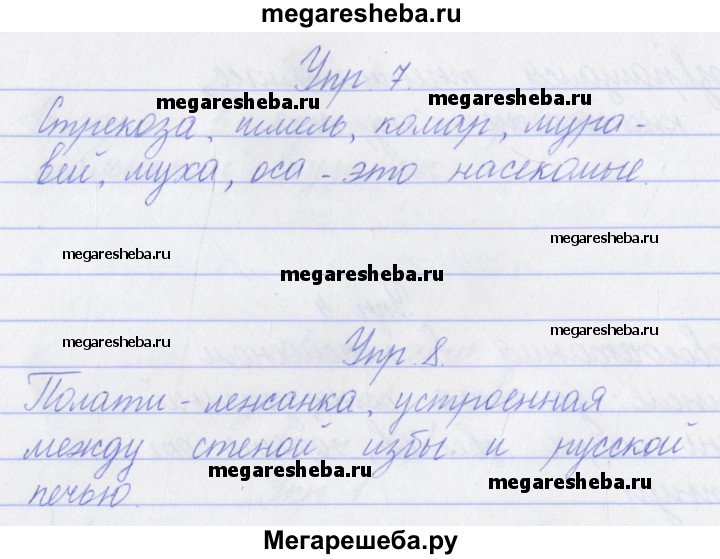 megaresheba.ru
Упр. 7.
megaresheba.ru
megaresheba.ru
Стрекоза, шмель, комар, мура-
вей, муха, оса - это насекомые.
megaresheba.ru
megaresheba.ru
megaresheba.ru
megaresheba.ru
megaresheba.ru
Упр. 8.
Полати - лежанка, устроенная
между стеной избы и русской
megaresheba.ru
megaresheba.ru
печью.
Мегарешеба.ру